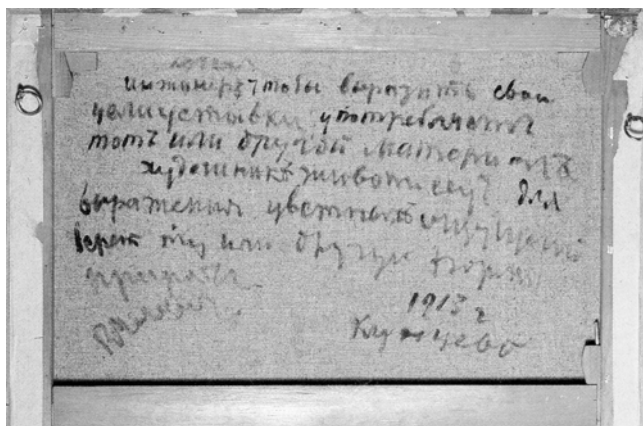 инженеръ чтобы выразить свои
употребляетъ
тотъ или другой матери
художникъ живописецъ для
выражения цветныхъ ощущений
берет ту или другую форму
природы
1913 г
Кунцево